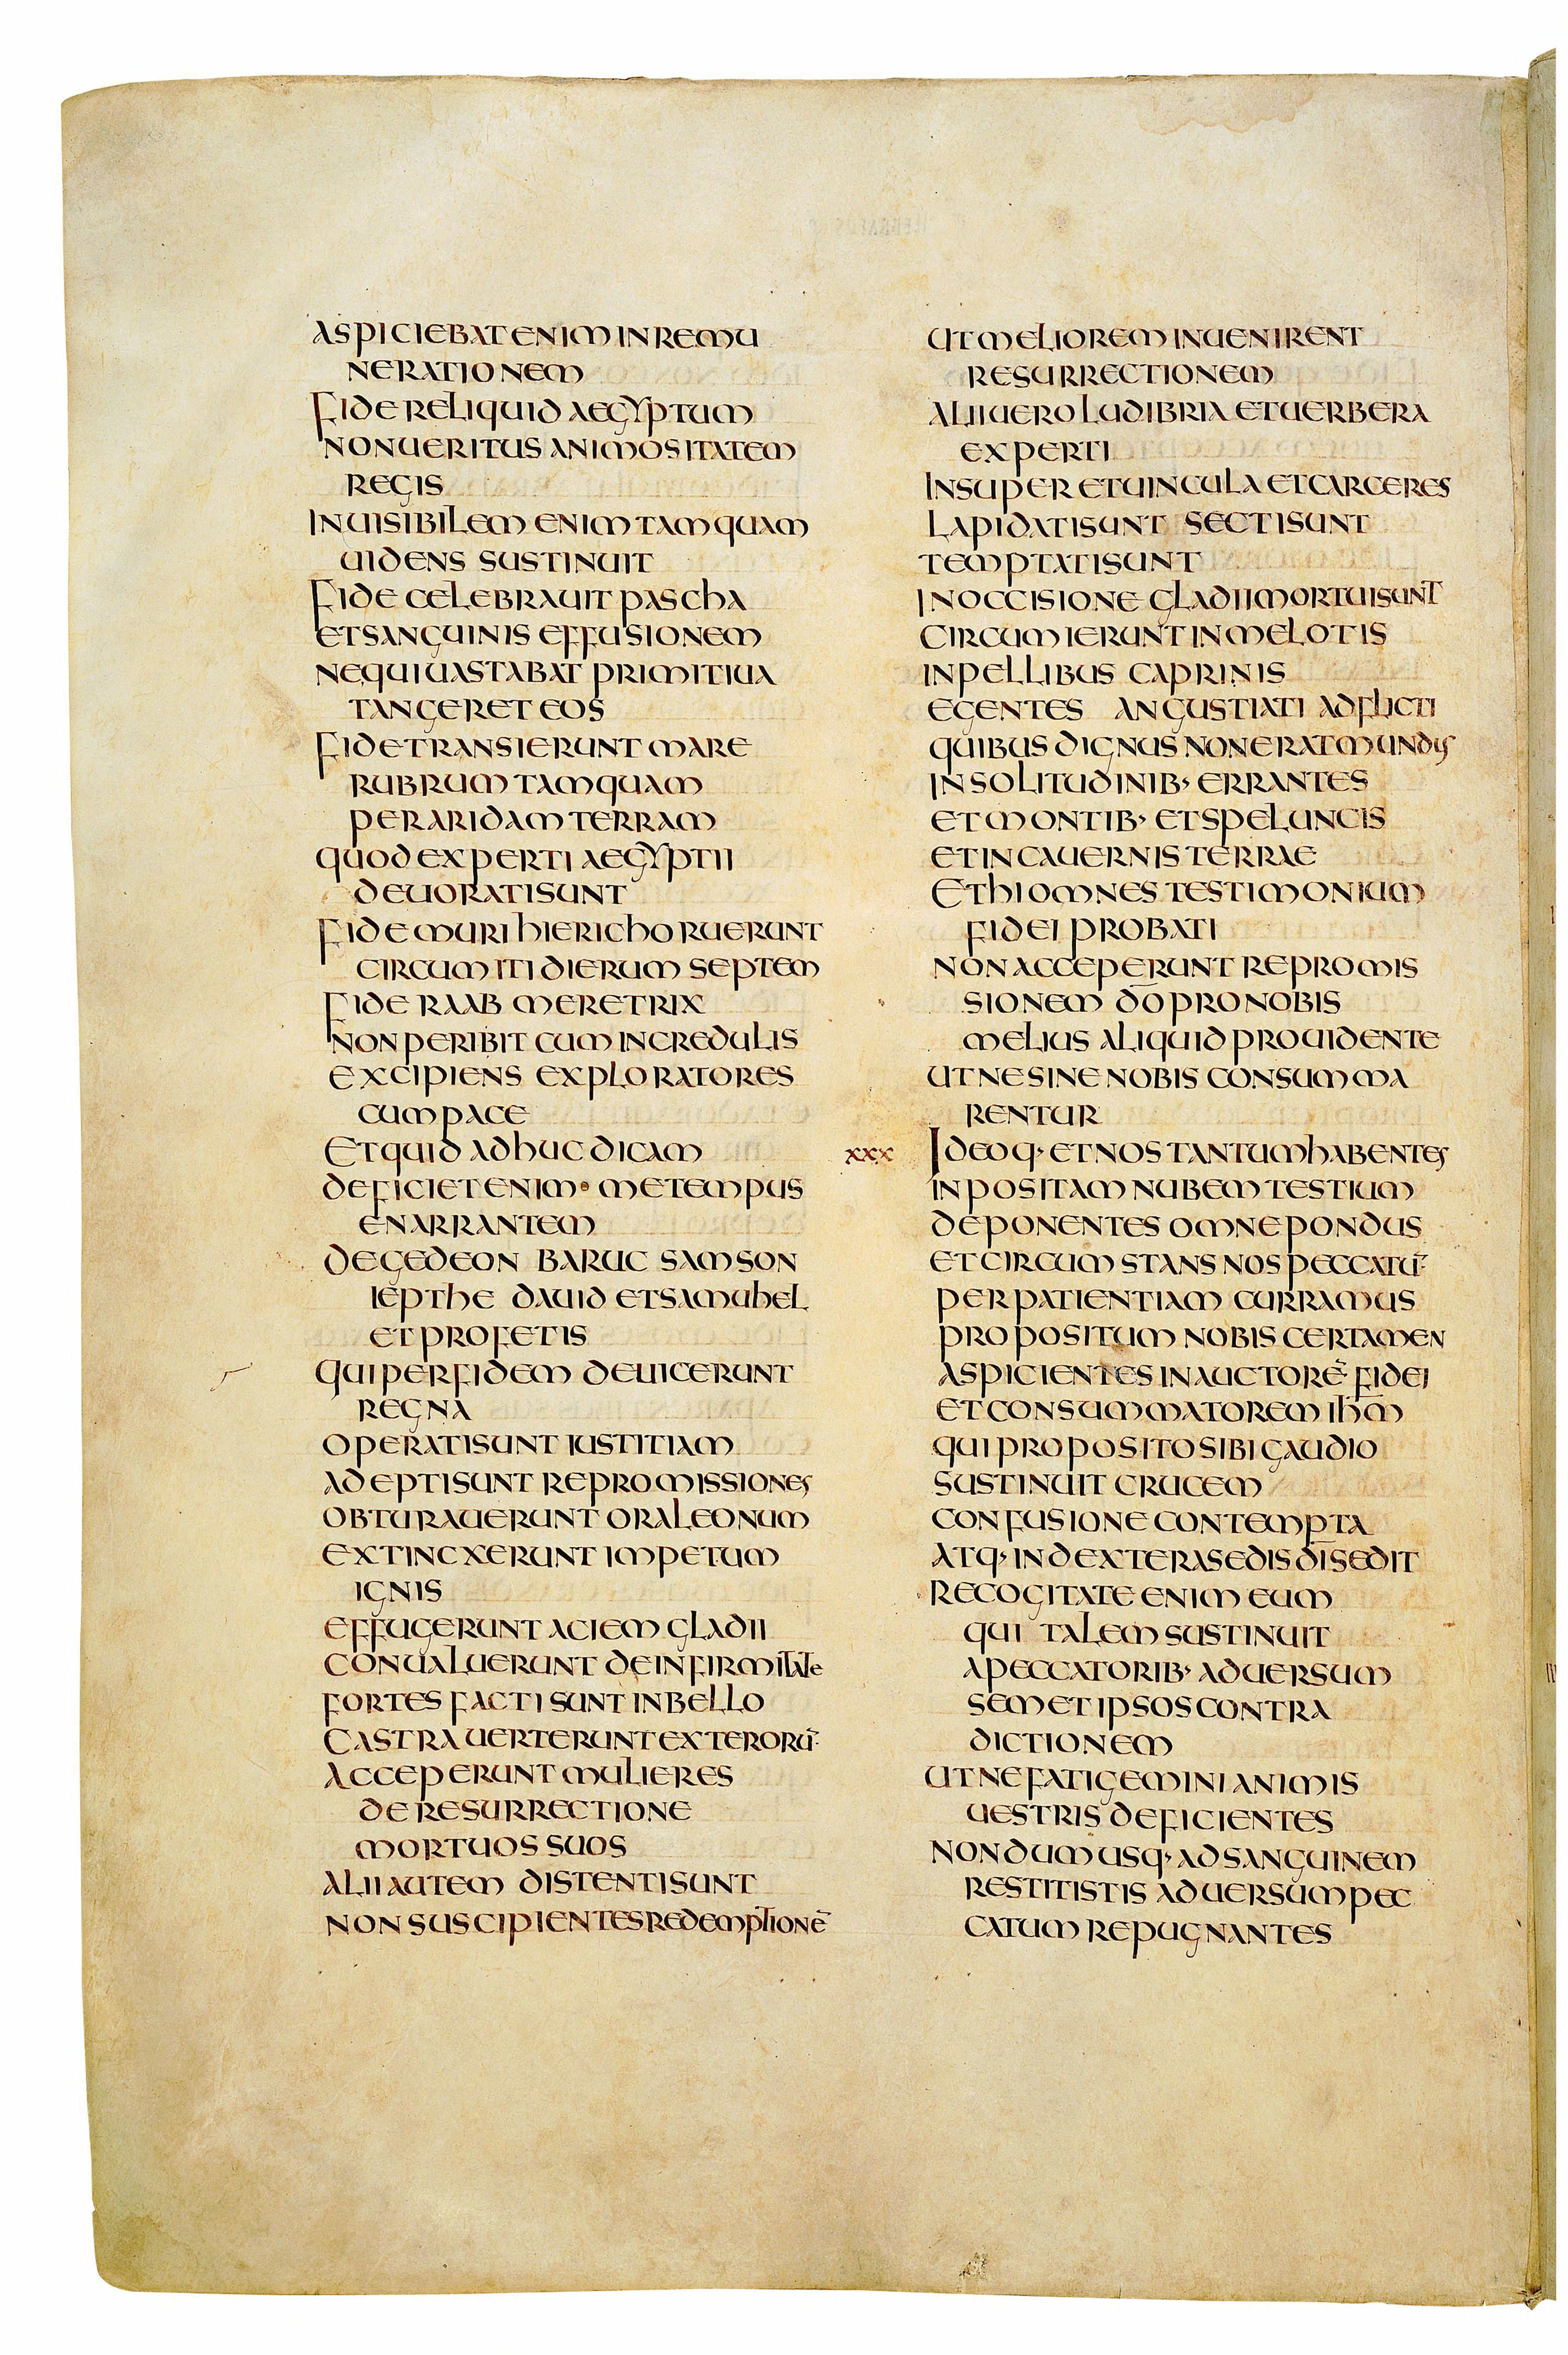 ASPICIEBAT ENIM IN REMU
NERATIONEM
FIDE RELIQUID AEGYPTUM
NON UERITUS ANIMOSITATEM
REGIS
INUISIBILEM ENIM TAMQUAM
UIDENS SUSTINUIT
FIDE CELEBRAUIT PASCHA
ET SANGUINIS EFFUSIONEM
NE QUI UASTABAT PRIMITIUA
TANGERET EOS
FIDE TRANSIERUNT MARE
RUBRUM TAMQUAM
PER ARIDAM TERRAM
QUOD EXPERTI AEGYPTII
DEUORATI SUNT
FIDE MURI HIERICHO RUERUNT
CIRCUMITI DIERUM SEPTEM
FIDE RAAB MERETRIX
NON PERIBIT CUM INCREDULIS
EXCIPIENS EXPLORATORES
CUM PACE
ET QUID ADHUC DICAM
DEFICIET ENIM • ME TEMPUS
ENARRANTEM
DE GEDEON BARUC SAMSON
IEPTHE DAUID ET SAMUHEL
ET PROFETIS
QUI PER FIDEM DEUICERUNT
REGNA
OPERATI SUNT IUSTITIAM
ADEPTI SUNT REPROMISSIONES
OBTURAUERUNT ORA LEONUM
EXTINCXERUNT IMPETUM
IGNIS
EFFUGERUNT ACIEM GLADII
CONUALUERUNT DE INFIRMITATE
FORTES FACTI SUNT IN BELLO
CASTRA UERTERUNT EXTERORŪ
ACCEPERUNT MULIERES
DE RESURRECTIONE
MORTUOS SUOS
ALII AUTEM DISTENTI SUNT
NON SUSCIPIENTES REDEMPTIONĒ
UT MELIOREM INUENIRENT
RESURRECTIONEM
ALII UERO LUDIBRIA ET UERBERA
EXPERTI
INSUPER ET UINCULA ET CARCERES
LAPIDATI SUNT SECTI SUNT
TEMPTATI SUNT
IN OCCISIONE GLADII MORTUI SUNT
CIRCUMIERUNT IN MELOTIS
IN PELLIBUS CAPRINIS
EGENTES ANGUSTIATI ADFLICTI
QUIBUS DIGNUS NON ERAT MUNDUS
IN SOLITUDINIB· ERRANTES
ET MONTIB· ET SPELUNCIS
ET IN CAUERNIS TERRAE
ET HI OMNES TESTIMONIUM
FIDEI PROBATI
NON ACCEPERUNT REPROMIS
SIONEM D̄O PRO NOBIS
MELIUS ALIQUID PROUIDENTE
UT NE SINE NOBIS CONSUMMA
RENTUR
XXX IDEOQ· ET NOS TANTUM HABENTES
INPOSITAM NUBEM TESTIUM
DEPONENTES OMNE PONDUS
ET CIRCUMSTANS NOS PECCATŪ
PER PATIENTIAM CURRAMUS
PROPOSITUM NOBIS CERTAMEN
ASPICIENTES IN AUCTORĒ FIDEI
ET CONSUMMATOREM IH̄M
QUI PROPOSITO SIBI GAUDIO
SUSTINUIT CRUCEM
CONFUSIONE CONTEMPTA
ATQ· IN DEXTERA SEDIS D̄I SEDIT
RECOGITATE ENIM EUM
QUI TALEM SUSTINUIT
A PECCATORIB· ADUERSUM
SEMETIPSOS CONTRA
DICTIONEM
UT NE FATIGEMINI ANIMIS
UESTRIS DEFICIENTES
NONDUM USQ· AD SANGUINEM
RESTITISTIS ADUERSUM PEC
CATUM REPUGNANTES